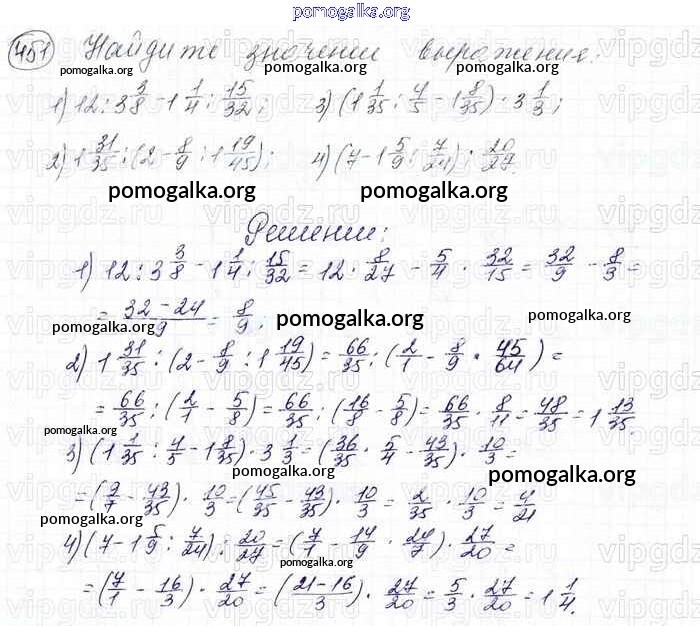 pomogalka.org
451 Найдите значении выражение:
pomogalka.org pomogalka.org
1) 12 : 3 3/8 - 1 1/4 : 15/32; 3) (1 1/35 : 4/5 - 1 8/35) · 3 1/3;
2) 1 31/35 : (2 - 8/9 : 1 19/45); 4) (7 - 1 5/9 : 7/24) : 20/27.
pomogalka.org pomogalka.org
Решении:
1) 12 : 3 3/8 - 1 1/4 : 15/32 = 12 · 8/27 - 5/4 · 32/15 = 32/9 - 8/3 =
= 32 - 24/9 = 8/9.
pomogalka.org pomogalka.org pomogalka.org
2) 1 31/35 : (2 - 8/9 : 1 19/45) = 66/35 : (2/1 - 8/9 · 45/64) =
= 66/35 : (2/1 - 5/8) = 66/35 : (16/8 - 5/8) = 66/35 · 8/11 = 48/35 = 1 13/35.
pomogalka.org
3) (1 1/35 : 4/5 - 1 8/35) · 3 1/3 = (36/35 · 5/4 - 43/35) · 10/3 =
pomogalka.org
= (9/7 - 43/35) · 10/3 = (45/35 - 43/35) · 10/3 = 2/35 · 10/3 = 4/21
pomogalka.org
4) (7 - 1 5/9 : 7/24) : 20/27 = (7/1 - 14/9 · 24/7) · 27/20 =
pomogalka.org pomogalka.org
= (7/1 - 16/3) · 27/20 = (21 - 16/3) · 27/20 = 5/3 · 27/20 = 1 1/4.
pomogalka.org